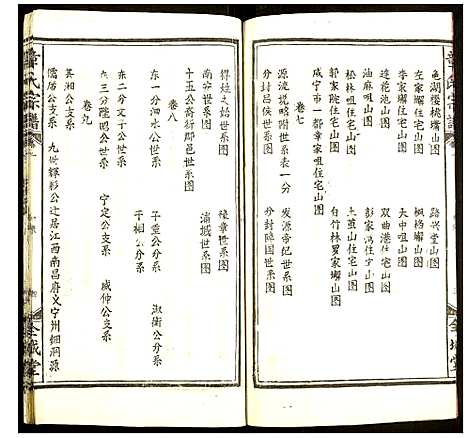 章氏宗譜
龟湖樱桃嘴山图
路兴堂山图
左家塅住宅山图
枫梅塅山图
李家塅住宅山图
夫中咀山图
莲花池山图
双曲港住宅山图
油麻咀山图
彭家冯住宁山图
松林咀山图
土篢山住宅图
郭家院住宅山图
白竹林罗家塅山图
咸宁市一都章家咀住宅山图
卷七
源流规略附世系表一分
发源帝纪世系图
分封吕侯世系图
分封鄣国世系图
全城堂
得姓之始世系图
樟章世系图
南安世系图
浦城世系图
十五公裔衍郡邑世系图
卷八
东一分泗水公世系
子重公分系
淑衡公分系
子相公分系
东二分文子公世系
东三分陞照公世系
宁定公支系
咸仲公支系
卷九
芸湘公支系
儒盾公支系
九世辉彩公迁居江西南昌府义宁州烟洞源
章氏宗譜
全城堂